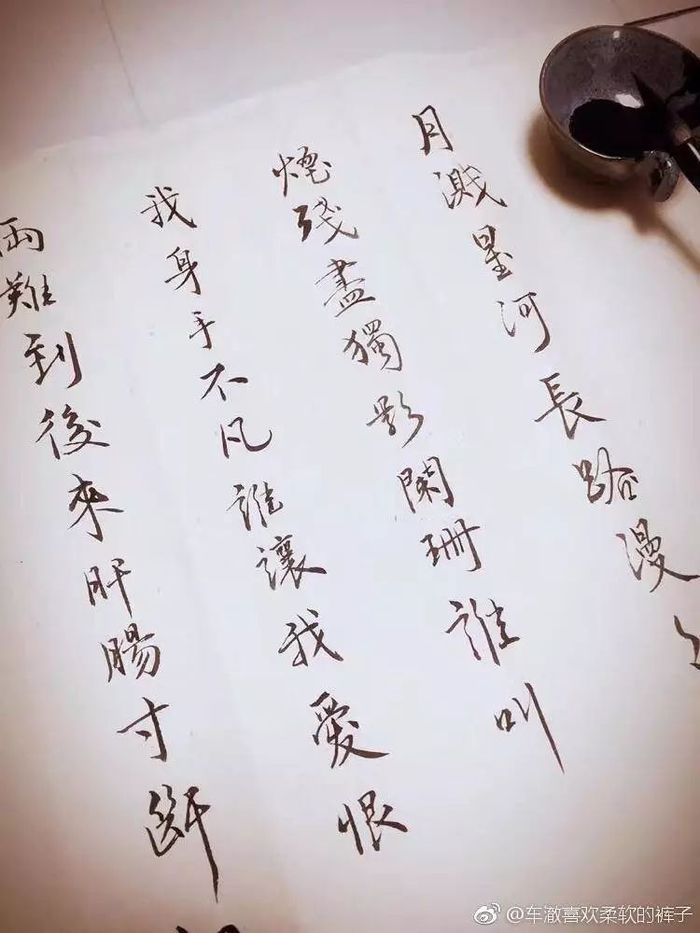 月濺星河長路漫々
煙殘盡獨影闌珊誰叫
我身手不凡誰讓我愛恨
兩難到後來肝腸寸斷
@车澈喜欢柔软的裤子